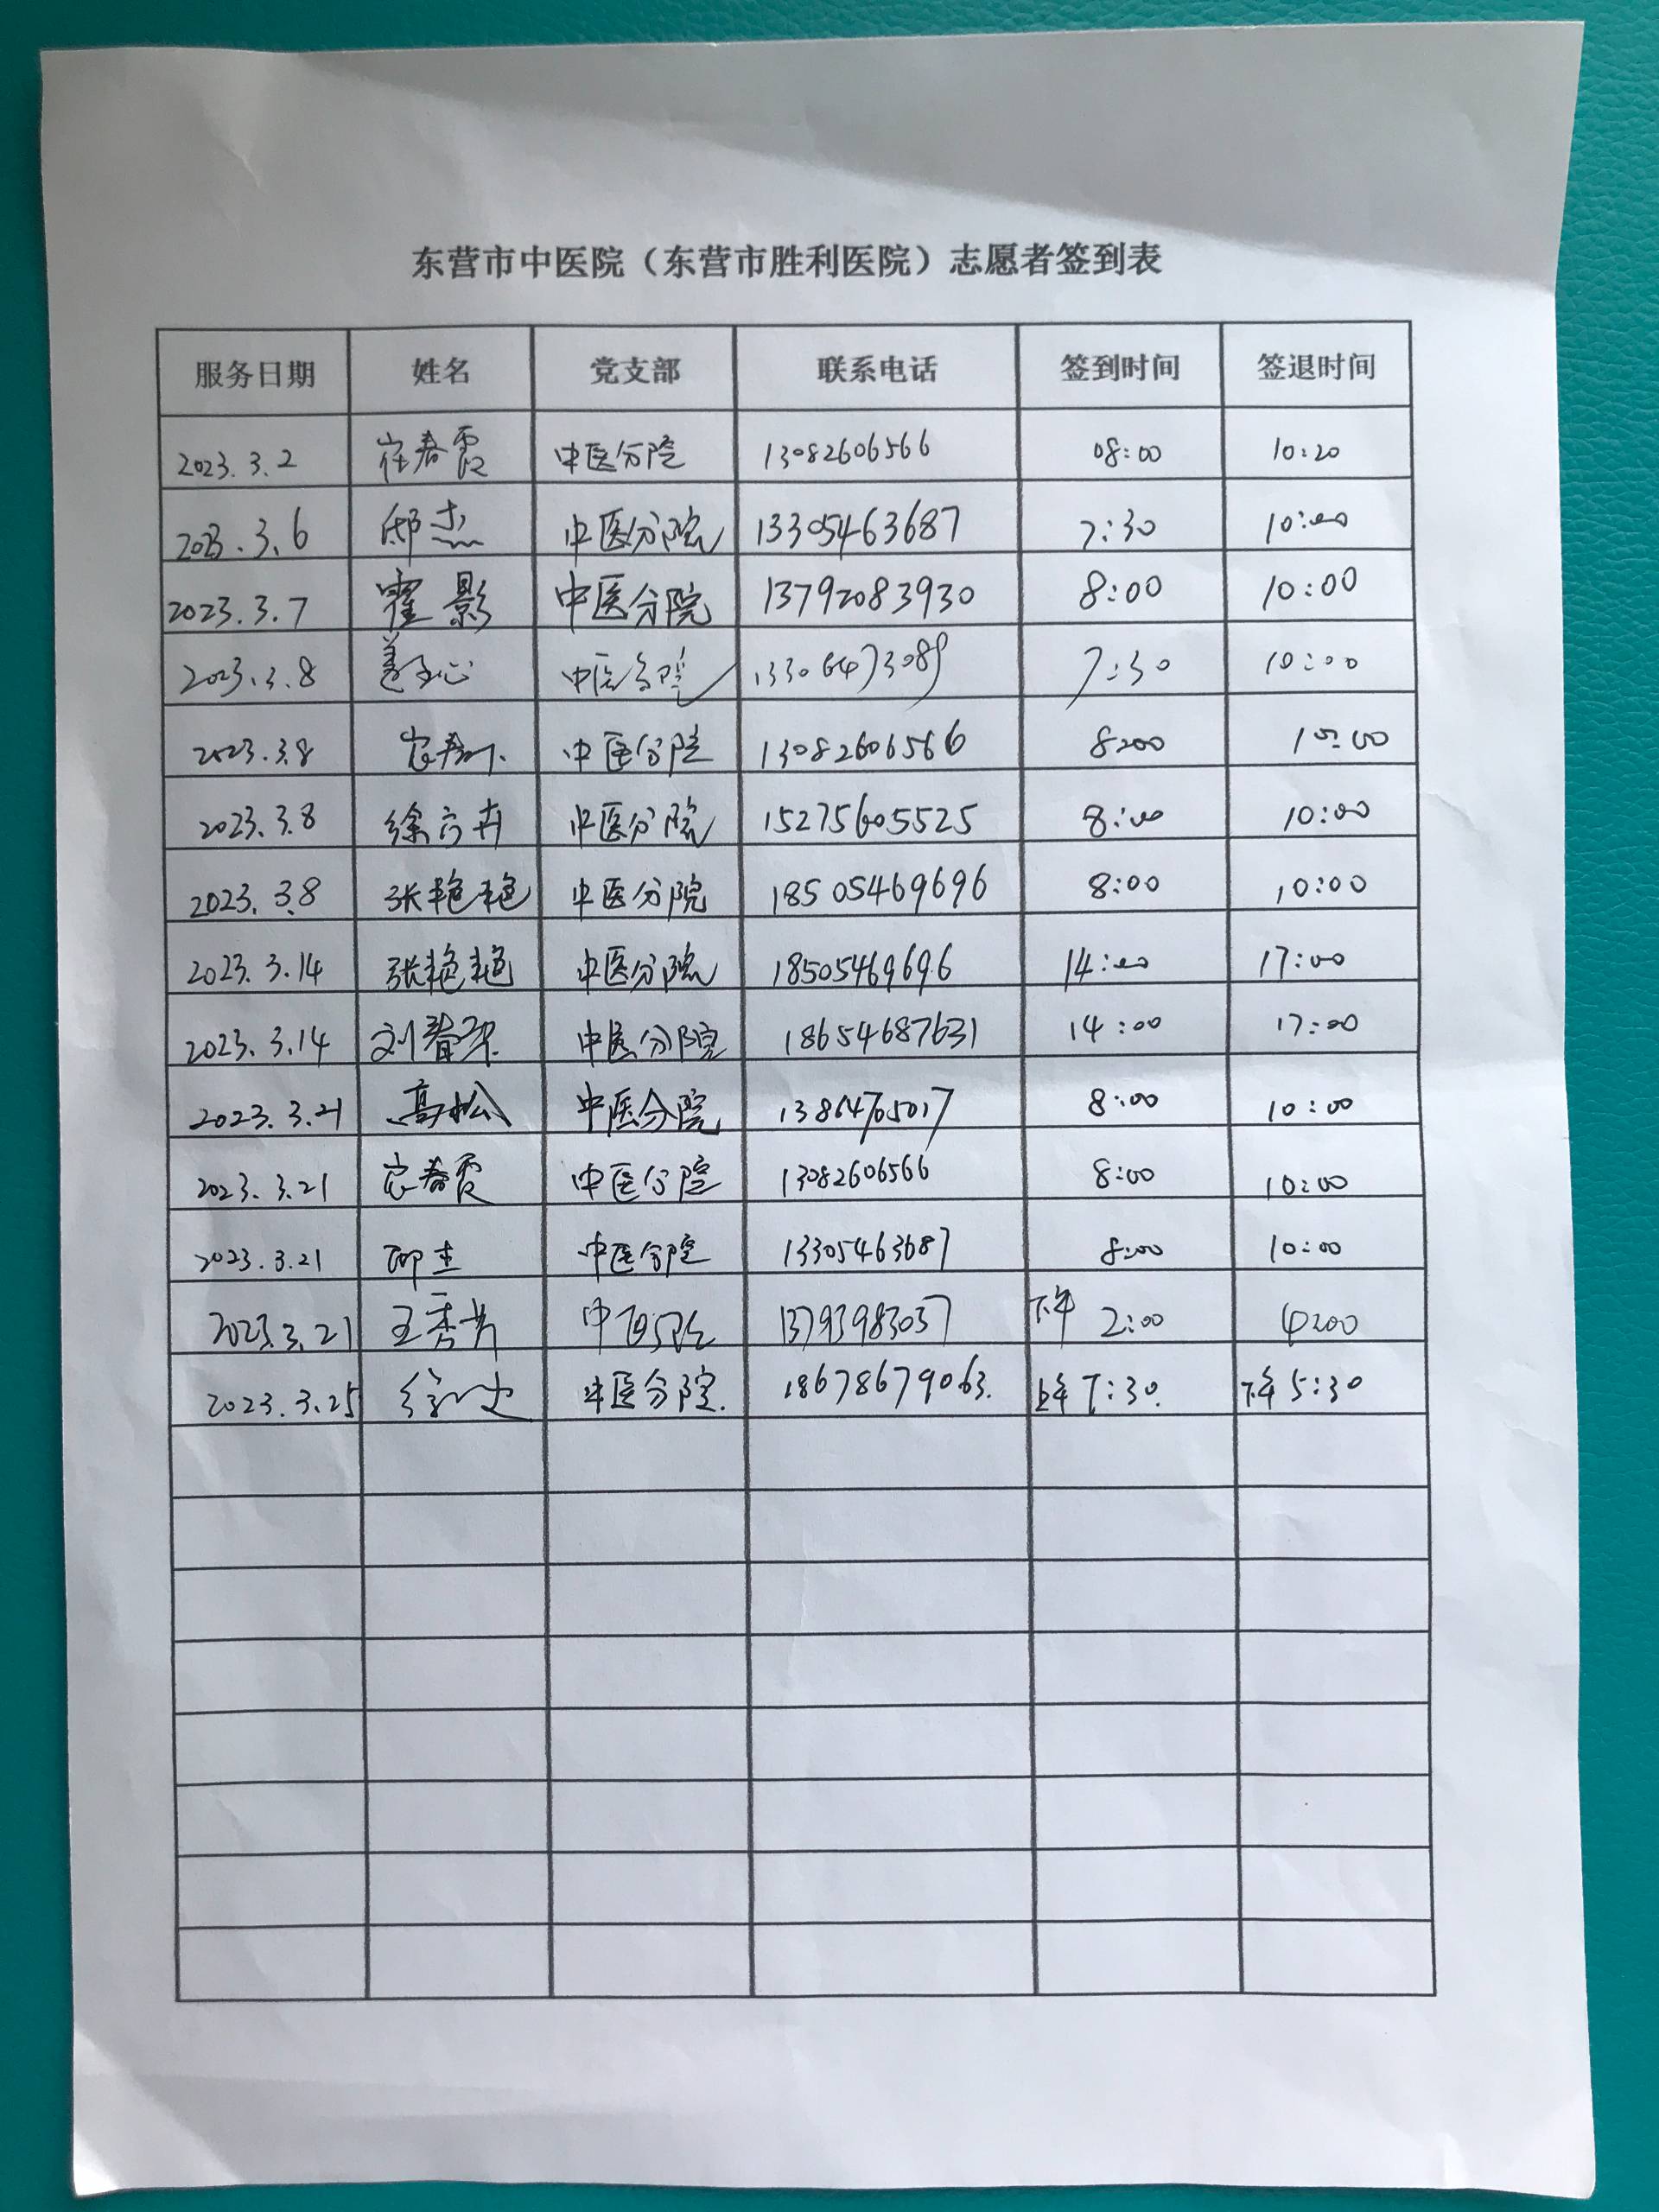 东营市中医院（东营市胜利医院）志愿者签到表
服务日期 姓名 党支部 联系电话 签到时间 签退时间
2023.3.2 春霞 中医分院 13082606566 08:00 10:20
2023.3.6 邴杰 中医分院 13305463687 7:30 10:00
2023.3.7 霍影 中医分院 13792083930 8:00 10:00
2023.3.8 中医分院 13306473089 7:30 10:00
2023.3.8 中医分院 13082606566 8:00 10:00
2023.3.8 徐 卉 中医分院 15275605525 8:00 10:00
2023.3.8 张艳艳 中医分院 18505469696 8:00 10:00
2023.3.14 张艳艳 中医分院 18505469696 14:00 17:00
2023.3.14 刘春 中医分院 18654687631 14:00 17:00
2023.3.21 高松 中医分院 13864705017 8:00 10:00
2023.3.21 春霞 中医分院 13082606566 8:00 10:00
2023.3.21 邴杰 中医分院 13305463687 8:00 10:00
2023.3.21 王秀芳 中医分院 13793983037 下午 2:00 4:00
2023.3.25 徐 中医分院. 18678679063. 上午 7:30. 下午 5:30